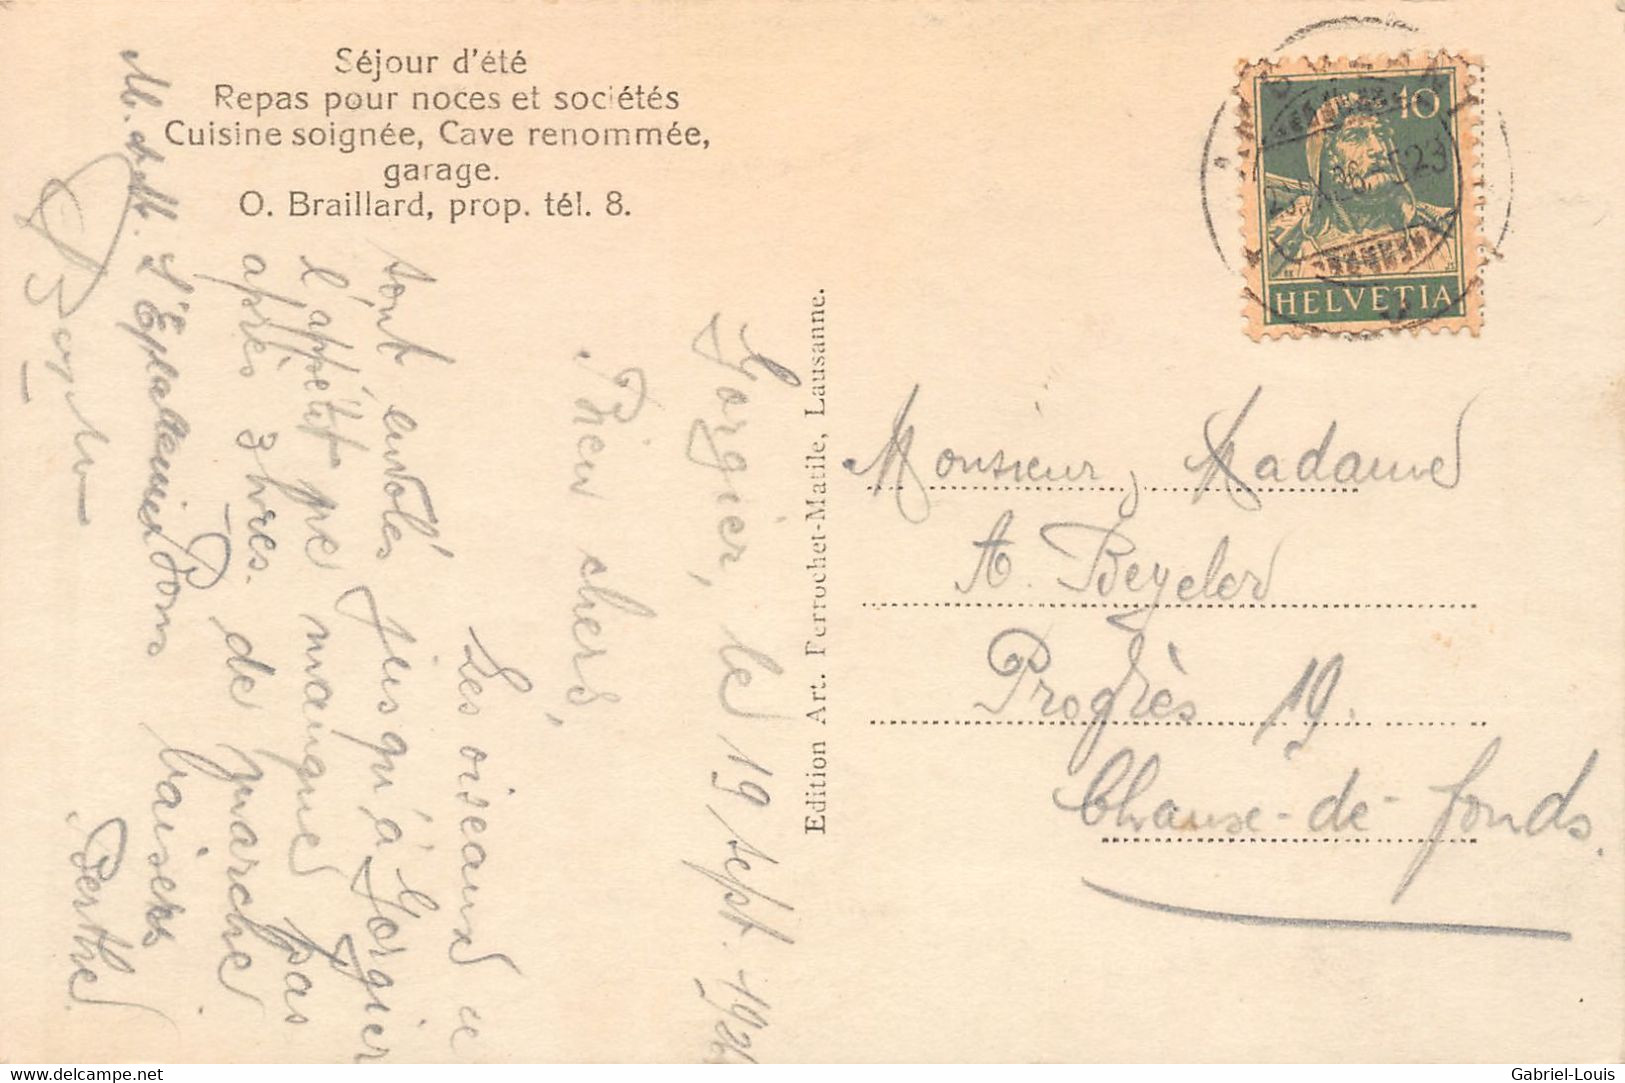 Séjour d'été
Repas pour noces et sociétés
Cuisine soignée, Cave renommée,
garage.
O. Braillard, prop. tél. 8.
Gorgier, le 19 sept. 192
Bien chers,
Les oiseaux se
sont envolés jusqu'à Gorgier
l'appétit ne manque pas
après 3 hres. de marche
Bons baisers
Berthe
M. et M. L'Eplattenier
Edition Art. Perrochet-Matile, Lausanne.
10
HELVETIA
Monsieur, Madame
A. Beyeler
Progrès 19.
Chaux-de-fonds.
delcampe.net
Gabriel-Louis